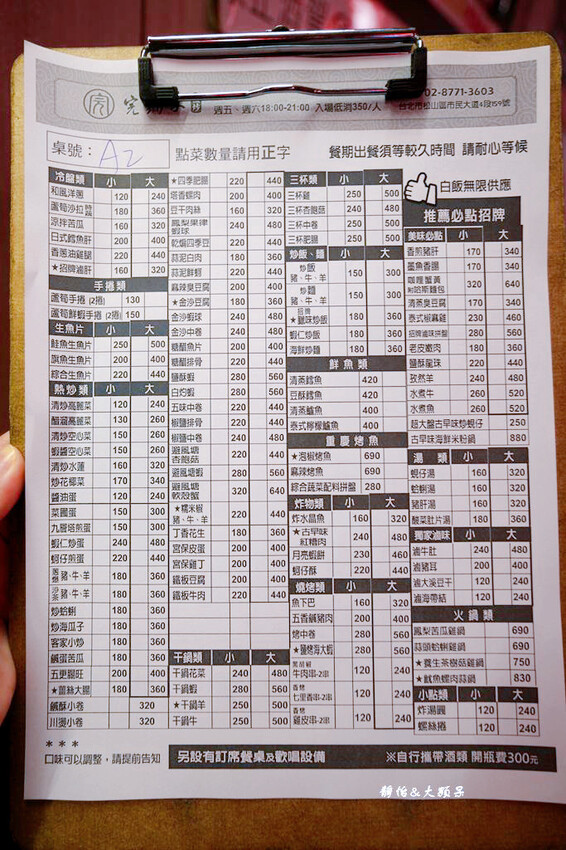 週五、週六18:00-21:00 入場低消350/人
02-8771-3603
台北市松山區市民大道4段159號
桌號：A2
點菜數量請用正字
餐期出餐須等較久時間 請耐心等候
冷盤類 小 大
和風洋蔥 120 240
蘆筍沙拉 160 320
涼拌苦瓜 160 320
日式鱈魚肝 200 400
香蔥油雞腿 220 440
★招牌滷肝 160 320
手捲類
蘆筍手捲 (2捲) 130
蘆筍鮮蝦手捲 (2捲) 150
生魚片 小 大
鮭魚生魚片 250 500
旗魚生魚片 200 400
綜合生魚片 220 440
熱炒類 小 大
清炒高麗菜 120 240
醋溜高麗菜 130 260
清炒空心菜 150 260
蝦醬空心菜 150 260
清炒水蓮 160 320
炒花椰菜 170 340
醬油蛋 120 240
菜圃蛋 150 300
九層塔煎蛋 150 300
蝦仁炒蛋 240 480
蚵仔煎蛋 220 440
蔥爆 豬、牛、羊 180 360
沙茶 豬、牛、羊 180 360
炒蛤蜊 180 360
炒海瓜子 180 360
客家小炒 180 360
鹹蛋苦瓜 180 360
五更腸旺 200 400
★薑絲大腸 180 360
鹹酥小卷 320
川燙小卷 320
★四季肥腸 220 440
塔香螺肉 200 400
豆干肉絲 160 320
鳳梨果律蝦球 240 480
乾煸四季豆 220 440
蒜泥白肉 180 360
蒜泥鮮蚵 180 360
麻辣臭豆腐 200 400
★金沙豆腐 180 360
金沙蝦球 240 480
金沙中卷 240 480
糖醋魚片 200 400
糖醋排骨 220 440
鹽酥蝦 280 560
白灼蝦 280 560
五味中卷 220 440
椒鹽排骨 220 440
椒鹽中卷 240 480
避風塘杏鮑菇 220 440
避風塘蝦 280 560
避風塘軟殼蟹 320 640
★糯米椒豬、牛、羊 220 440
丁香花生 180 360
宮保皮蛋 200 400
宮保雞丁 200 400
鐵板豆腐 200 400
鐵板牛肉 220 440
干鍋類 小 大
干鍋花菜 240 480
干鍋蝦 280 560
★干鍋羊 250 500
干鍋牛 250 500
三杯類 小 大
三杯雞 250 500
三杯杏鮑菇 240 480
三杯中卷 250 500
三杯肥腸 240 480
炒飯、麵 小 大
炒飯豬、牛、羊 150 300
炒麵豬、牛、羊 150 300
招牌★臘味炒飯 180 360
蝦仁炒飯 180 360
海鮮炒麵 180 360
鮮魚類
清蒸鱈魚 420
豆酥鱈魚 420
清蒸鱸魚 400
泰式檸檬鱸魚 400
重慶烤魚
★泡椒烤魚 690
麻辣烤魚 690
綜合蔬菜配料拼盤 280
炸物類 小 大
炸水晶魚 160 320
★古早味紅糟肉 240 480
月亮蝦餅 230 460
蚵仔酥 220 440
燒烤類 小 大
魚下巴 160 320
五香鹹豬肉 200 400
烤中卷 280 560
★鹽烤海大蝦 280 560
黑胡椒牛肉串-2串 120 240
香烤七里香串-2串 120 240
香烤雞皮串-2串 120 240
白飯無限供應
推薦必點招牌
美味必點 小 大
香煎豬肝 170 340
墨魚香腸 170 340
咖哩蟹黃附哈斯麵包 320 640
清蒸臭豆腐 170 340
泰式椒麻雞 230 460
招牌滷味拼盤 280 560
老皮嫩肉 180 360
鹽酥龍珠 220 440
孜然羊 240 480
水煮牛 260 520
水煮魚 260 520
超大盤古早味炒蜆仔 250
古早味海鮮米粉鍋 880
湯 類 小 大
蚵仔湯 160 320
蛤蜊湯 160 320
豬肝湯 160 320
酸菜肚片湯 180 360
獨家滷味 小 大
滷牛肚 240 480
滷豬耳 200 400
滷大溪豆干 120 240
滷海帶結 120 240
火鍋類
鳳梨苦瓜雞鍋 690
蒜頭蛤蜊雞鍋 690
★養生茶樹菇雞鍋 750
★魷魚螺肉蒜鍋 830
小點類 小 大
炸湯圓 120 240
螺絲捲 120 240
＊＊＊
口味可以調整，請提前告知
另設有訂席餐桌及歡唱設備
※自行攜帶酒類 開瓶費300元
靜怡&大顆呆